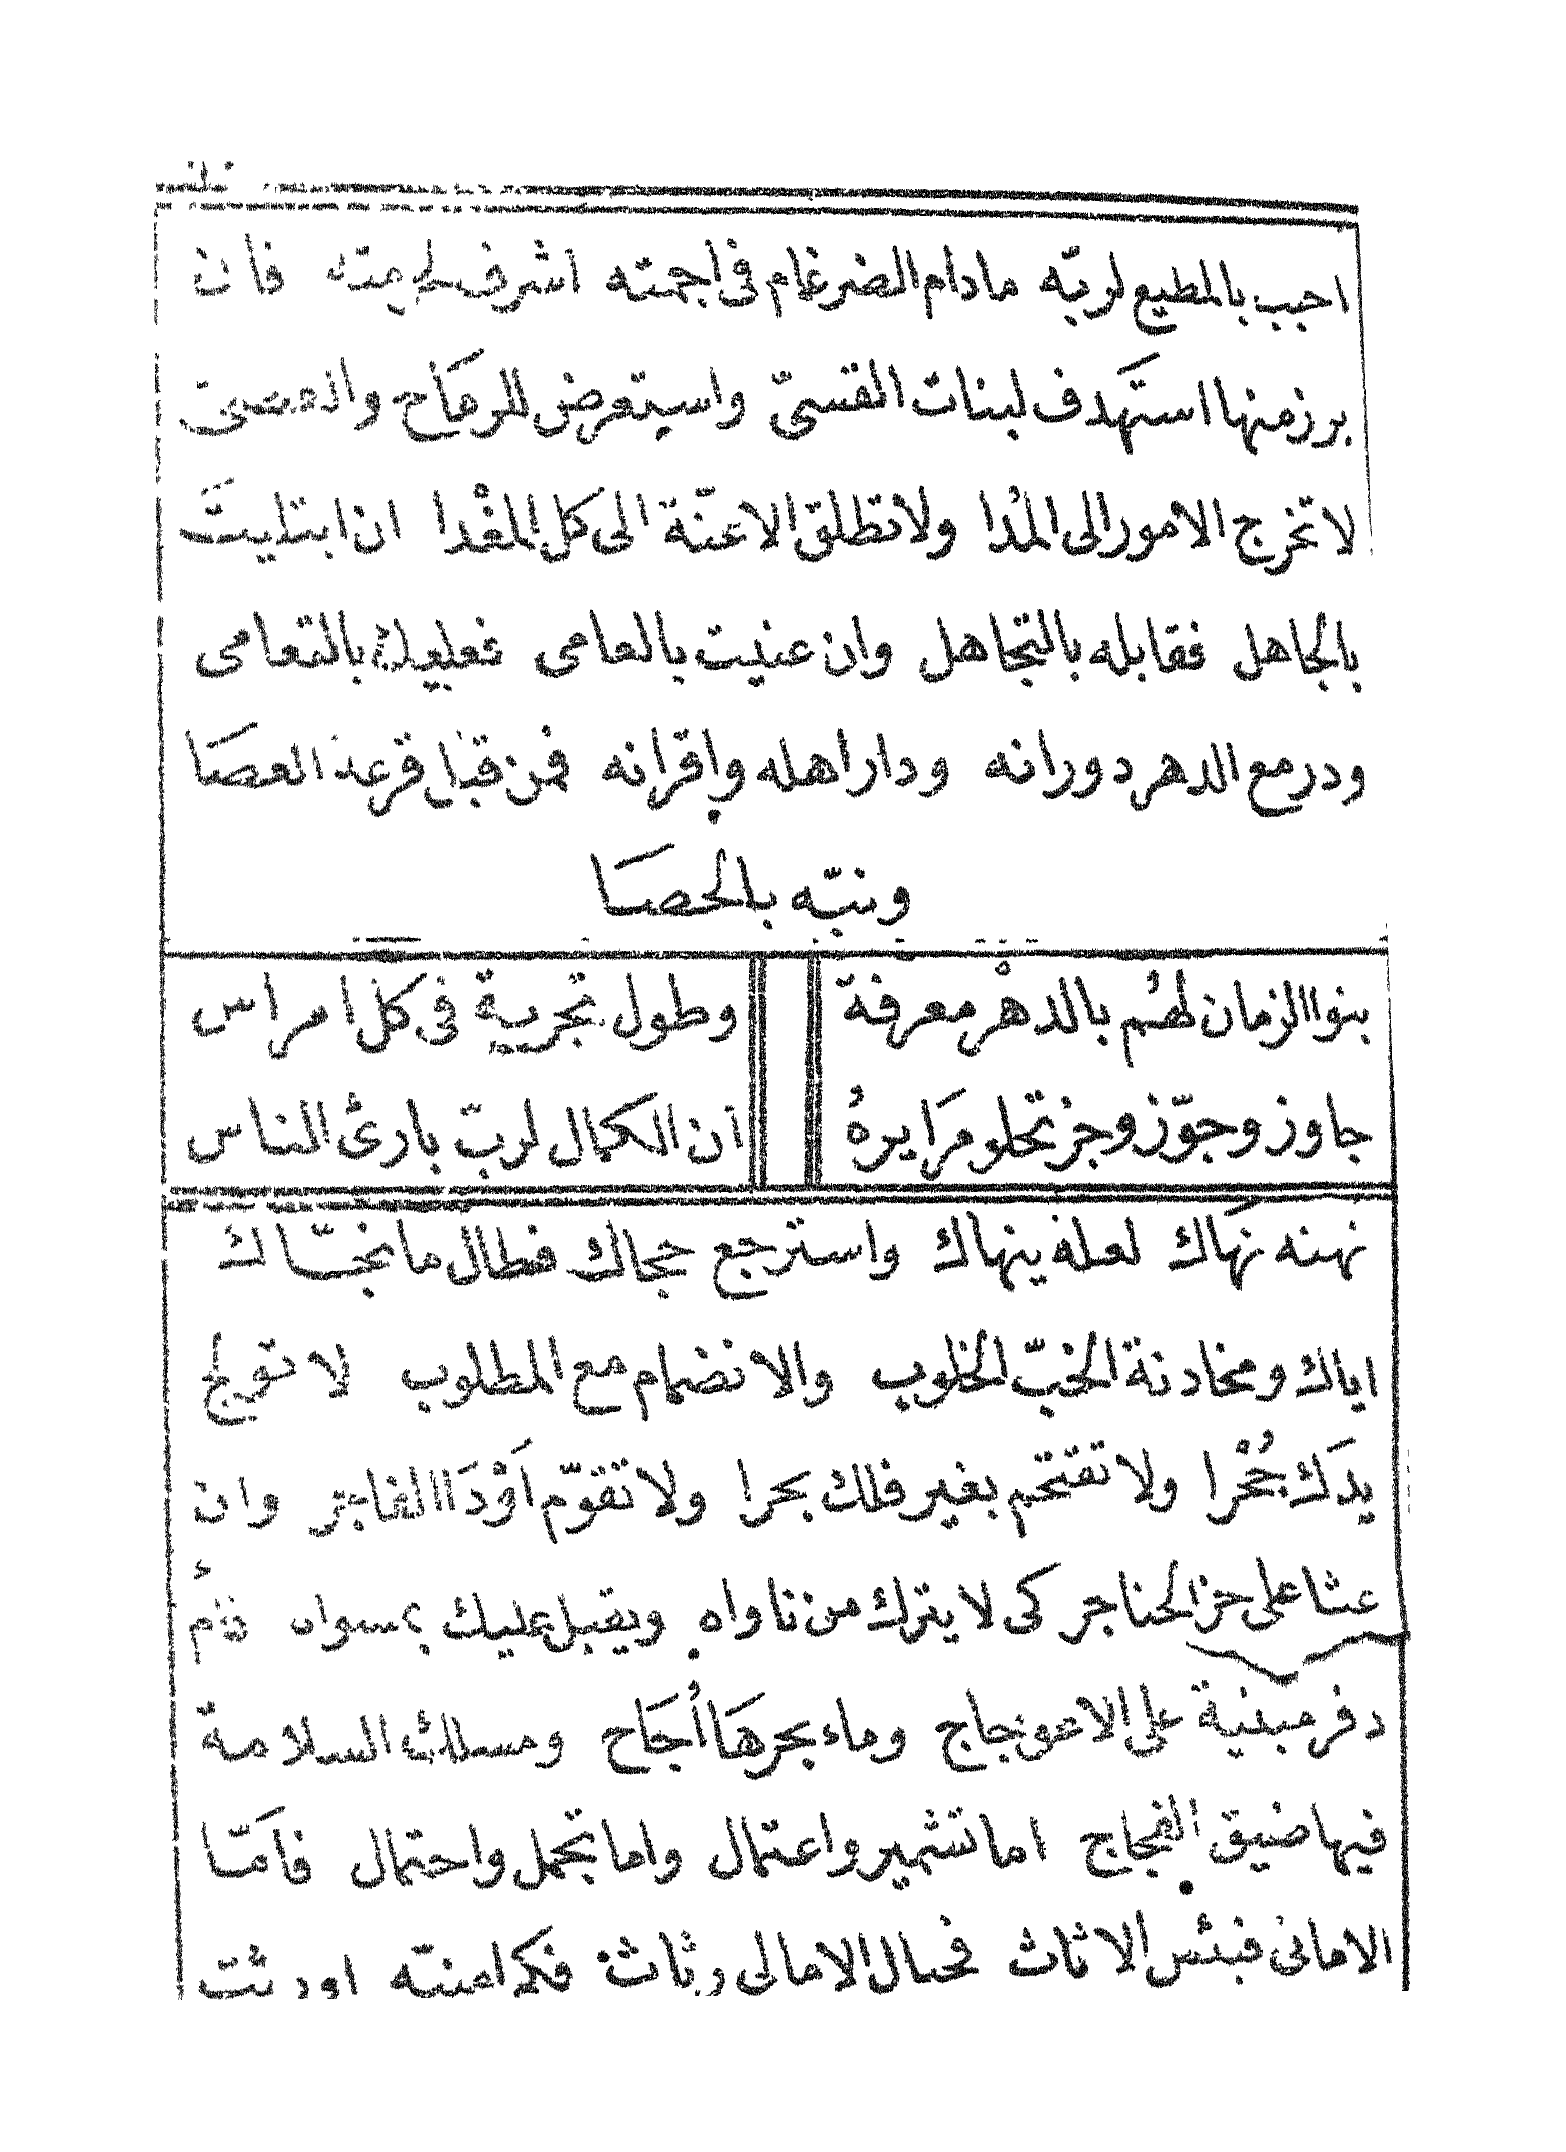 احبب بالمطيع لربّه مادام الضرغام فى اجمته اشرف فان
برزمنها استهدف لبنات القسىّ واستعرض للرماح
لا تخرج الامور الى المُدا ولا تطلق الاعنّة الى كل المغْدا ان ابتليتَ
بالجاهل فقابله بالتجاهل وان عنيت بالعامى فعليك بالتعامى
ودر مع الدهر دورانه ودار اهله واقرانه فمن قبل قرعت العصَا
ونبّه بالحصَا
بنوا الزمان لهُم بالدهْر معرفة وطول تجربة فى كل امراس
جاوز وجوّز وجز تحلو مرَايرهُ ان الكمال لربّ بارئ الناس
نهنه نهَاك لعله ينهاك واسترجع حجاك فطال ما نخّاك
اياك ومخادنة الخبّ الخلوب والانضمام مع المطلوب لا تولج
يدَك جُحْرا ولا تقتحم بغير فلك بحرا ولا تقوّم اَوْدَ الفاجر وان
عثا على حز الحناجر كى لا يترك من ناواه ويقبل عليك بسواه فأم
دفر مبنية على الاعوجاج وماء بحرهَا اُجَاج ومسلك السلامة
فيها ضيق الفجاج اما تشمير واعتمال واما تجمل واحتمال فاَمّا
الامانى فبئس الاثاث فحبال الامالى رثاث فكم امنيّه اورثت